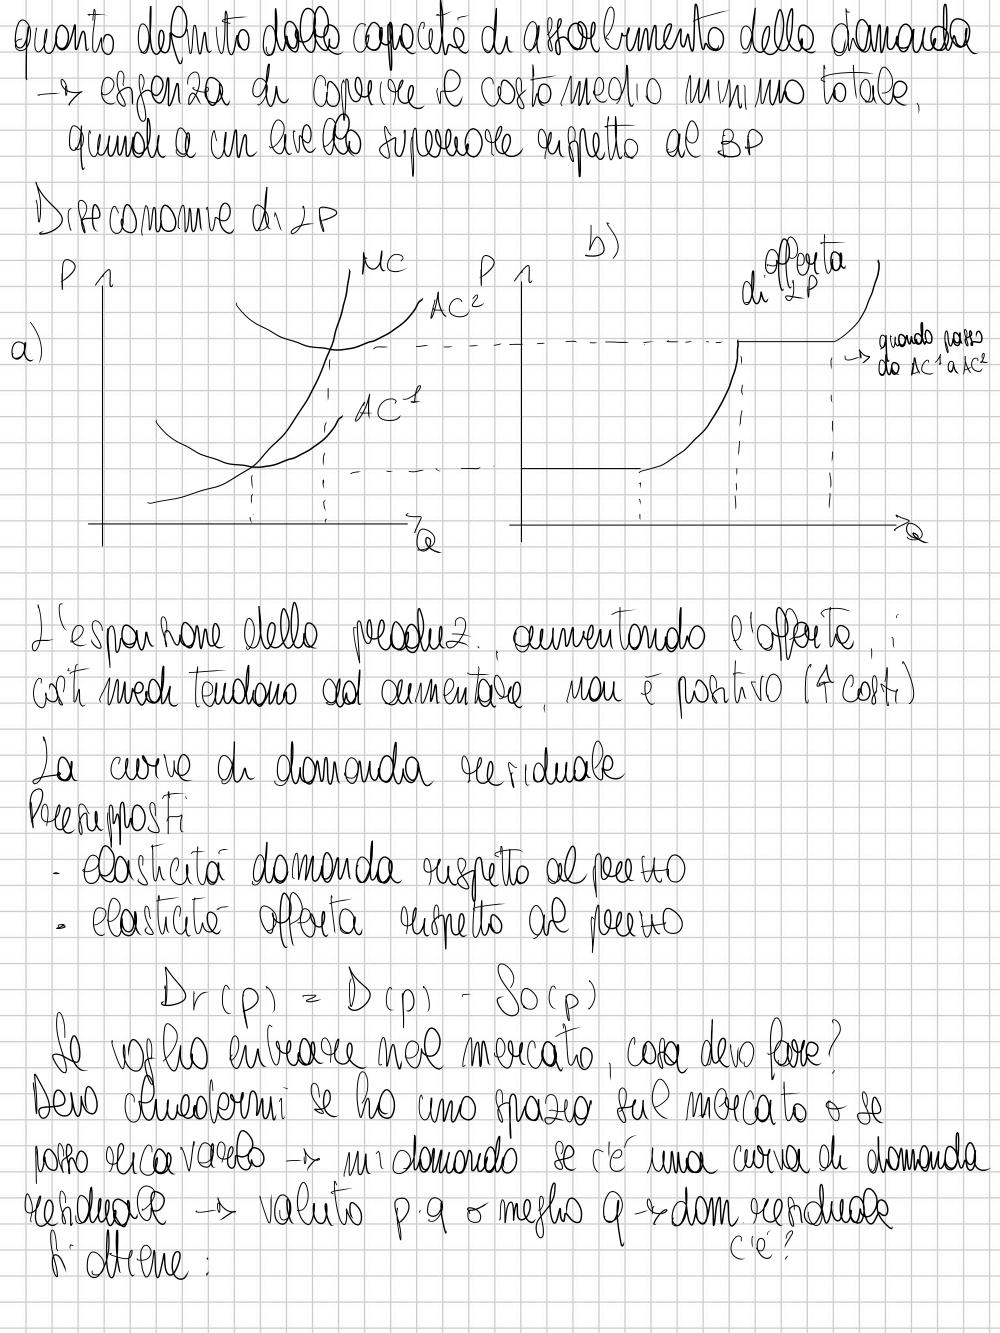 quanto definito dalla capacità di assorbimento della domanda
-> esigenza di coprire il costo medio minimo totale,
quindi a un livello superiore rispetto al BP
Diseconomie di LP
a)
P
MC
AC²
AC¹
Q
b)
P
offerta
di LP
-> quando passo
da AC¹ a AC²
Q
L'espansione della produz., aumentando l'offerta, i
costi medi tendono ad aumentare, non è positivo (↑ costi)
La curva di domanda residuale
Presupposti
- elasticità domanda rispetto al prezzo
- elasticità offerta rispetto al prezzo
Dr(p) = D(p) - So(p)
Se voglio entrare nel mercato, cosa devo fare?
Devo chiedermi se ho uno spazio sul mercato o se
posso ricavarlo -> mi domando se c'è una curva di domanda
residuale -> valuto p.q o meglio q -> dom. residuale
c'è?
Si ottiene: